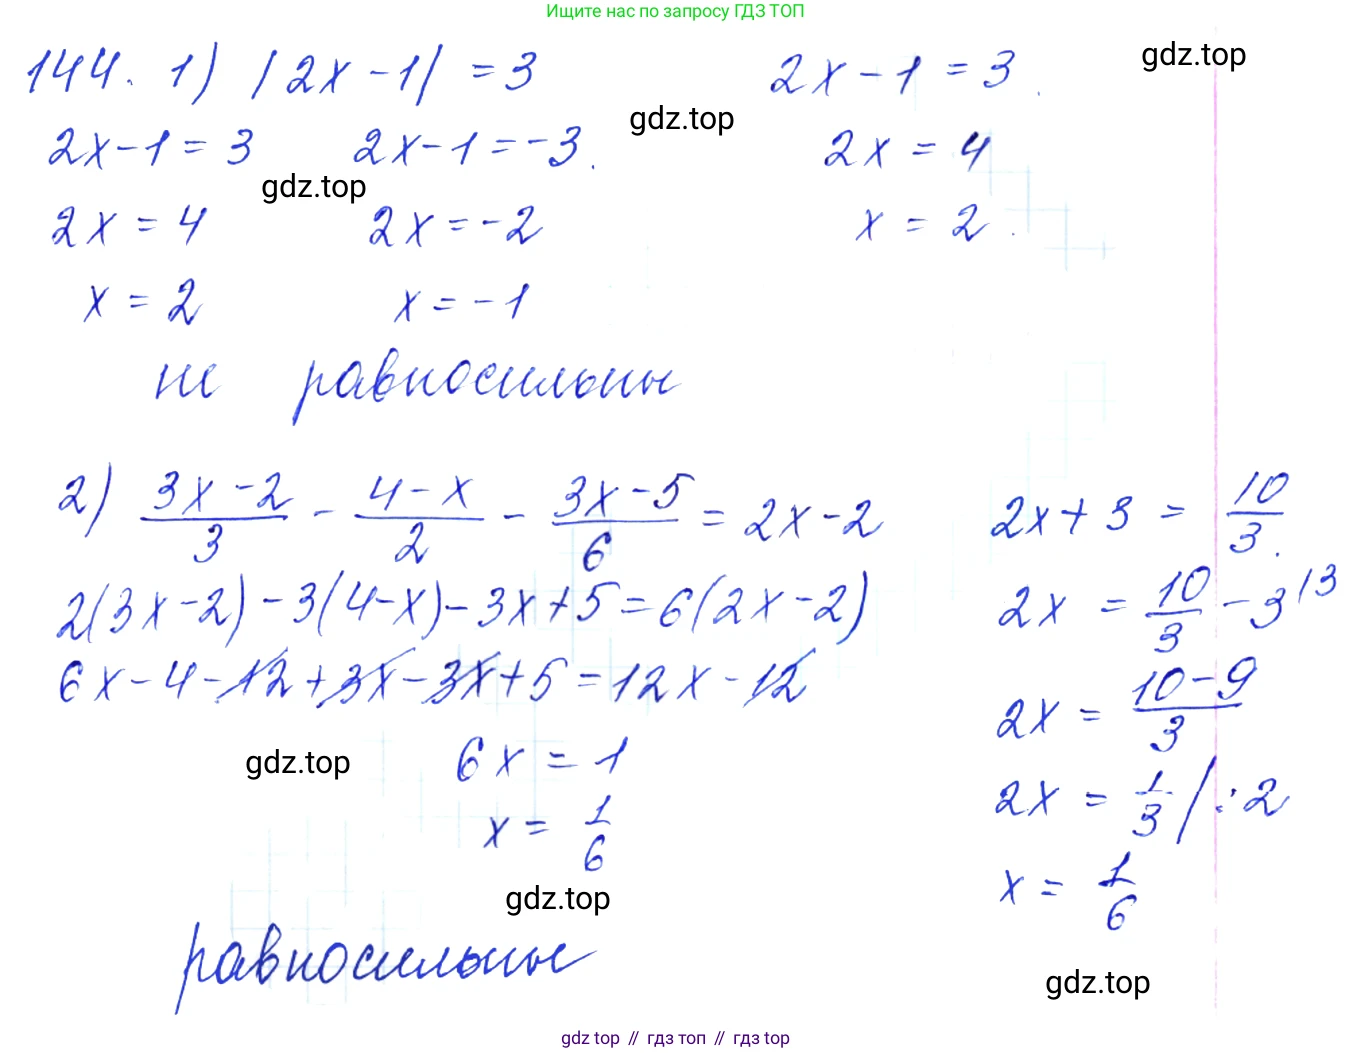 Ищите нас по запросу ГДЗ ТОП
144. 1) |2x-1| = 3
2x-1 = 3   2x-1 = -3.
2x = 4   2x = -2
x = 2   x = -1
2x-1 = 3.
2x = 4
x = 2.
не равносильны
2) \frac{3x-2}{3} - \frac{4-x}{2} - \frac{3x-5}{6} = 2x-2
2(3x-2) - 3(4-x) - 3x+5 = 6(2x-2)
6x-4-12+3x-3x+5 = 12x-12
6x = 1
x = \frac{1}{6}
2x+3 = \frac{10}{3}.
2x = \frac{10}{3} - 3^{/3}
2x = \frac{10-9}{3}
2x = \frac{1}{3} | :2
x = \frac{1}{6}
равносильны
gdz.top
gdz.top
gdz.top
gdz.top
gdz.top
gdz.top
gdz.top // гдз топ // gdz top